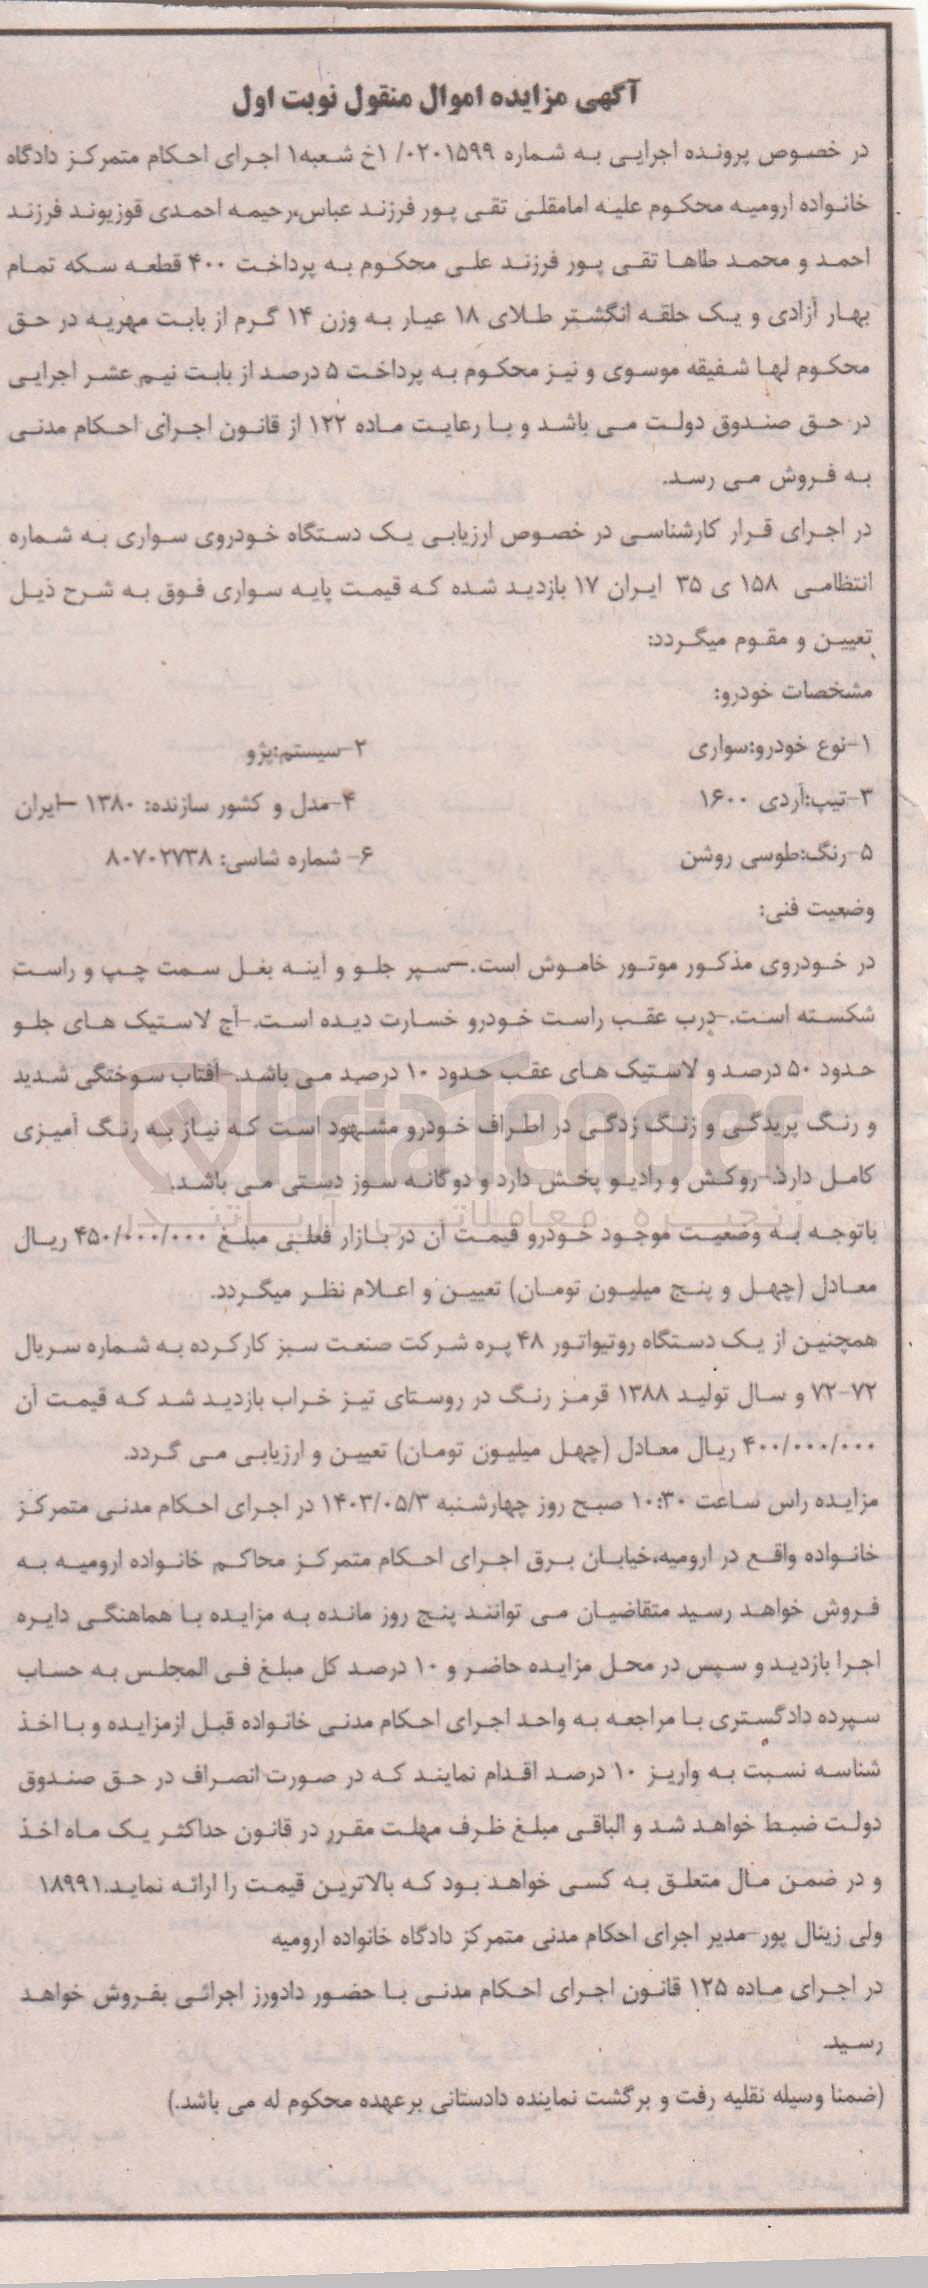 آگهی مزایده اموال منقول نوبت اول
در خصوص پرونده اجرایی به شماره ۰۲۰۱۵۹۹/ ۱خ شعبه۱ اجرای احکام متمرکز دادگاه
خانواده ارومیه محکوم علیه امامقلی تقی پور فرزند عباس،رحیمه احمدی قوزیوند فرزند
احمد و محمد طاها تقی پور فرزند علی محکوم به پرداخت ۴۰۰ قطعه سکه تمام
بهار آزادی و یک حلقه انگشتر طلای ۱۸ عیار به وزن ۱۴ گرم از بابت مهریه در حق
محکوم لها شفیقه موسوی و نیز محکوم به پرداخت ۵ درصد از بابت نیم عشر اجرایی
در حق صندوق دولت می باشد و با رعایت ماده ۱۲۲ از قانون اجرای احکام مدنی
به فروش می رسد.
در اجرای قرار کارشناسی در خصوص ارزیابی یک دستگاه خودروی سواری به شماره
انتظامی ۱۵۸ ی ۳۵ ایران ۱۷ بازدید شده که قیمت پایه سواری فوق به شرح ذیل
تعیین و مقوم میگردد:
مشخصات خودرو:
۱-نوع خودرو:سواری ۲-سیستم:پژو
۳-تیپ:آردی ۱۶۰۰ ۴-مدل و کشور سازنده: ۱۳۸۰ -ایران
۵-رنگ:طوسی روشن ۶- شماره شاسی: ۸۰۷۰۲۷۳۸
وضعیت فنی:
در خودروی مذکور موتور خاموش است.-سپر جلو و آینه بغل سمت چپ و راست
شکسته است.-درب عقب راست خودرو خسارت دیده است.-آج لاستیک های جلو
حدود ۵۰ درصد و لاستیک های عقب حدود ۱۰ درصد می باشد.-آفتاب سوختگی شدید
و رنگ پریدگی و زنگ زدگی در اطراف خودرو مشهود است که نیاز به رنگ آمیزی
کامل دارد.-روکش و رادیو پخش دارد و دوگانه سوز دستی می باشد.
باتوجه به وضعیت موجود خودرو قیمت آن در بازار فعلی مبلغ ۴۵۰/۰۰۰/۰۰۰ ریال
معادل (چهل و پنج میلیون تومان) تعیین و اعلام نظر میگردد.
همچنین از یک دستگاه روتیواتور ۴۸ پره شرکت صنعت سبز کارکرده به شماره سریال
۷۲-۷۲ و سال تولید ۱۳۸۸ قرمز رنگ در روستای تیز خراب بازدید شد که قیمت آن
۴۰۰/۰۰۰/۰۰۰ ریال معادل (چهل میلیون تومان) تعیین و ارزیابی می گردد.
مزایده راس ساعت ۱۰:۳۰ صبح روز چهارشنبه ۱۴۰۳/۰۵/۳ در اجرای احکام مدنی متمرکز
خانواده واقع در ارومیه،خیابان برق اجرای احکام متمرکز محاکم خانواده ارومیه به
فروش خواهد رسید متقاضیان می توانند پنج روز مانده به مزایده با هماهنگی دایره
اجرا بازدید و سپس در محل مزایده حاضر و ۱۰ درصد کل مبلغ فی المجلس به حساب
سپرده دادگستری با مراجعه به واحد اجرای احکام مدنی خانواده قبل ازمزایده و با اخذ
شناسه نسبت به واریز ۱۰ درصد اقدام نمایند که در صورت انصراف در حق صندوق
دولت ضبط خواهد شد و الباقی مبلغ ظرف مهلت مقرر در قانون حداکثر یک ماه اخذ
و در ضمن مال متعلق به کسی خواهد بود که بالاترین قیمت را ارائه نماید.۱۸۹۹۱
ولی زینال پور-مدیر اجرای احکام مدنی متمرکز دادگاه خانواده ارومیه
در اجرای ماده ۱۲۵ قانون اجرای احکام مدنی با حضور دادورز اجرائی بفروش خواهد
رسید.
(ضمنا وسیله نقلیه رفت و برگشت نماینده دادستانی برعهده محکوم له می باشد.)
AriaTender
زنجیره معاملاتی آریاتندر